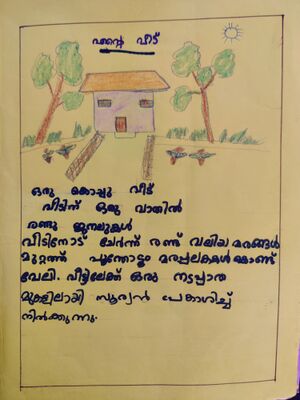 എന്റെ വീട്
ഒരു കൊച്ചു വീട്
വീട്ടിന് ഒരു വാതിൽ
രണ്ടു ജനലുകൾ
വീടിനോട് ചേർന്ന് രണ്ട് വലിയ മരങ്ങൾ
മുറ്റത്ത് പൂന്തോട്ടം മരപ്പലകകൾ കൊണ്ട്
വേലി. വീട്ടിലേക്ക് ഒരു നടപ്പാത
മുകളിലായി സൂര്യൻ പ്രകാശിച്ച്
നിൽക്കുന്നു.